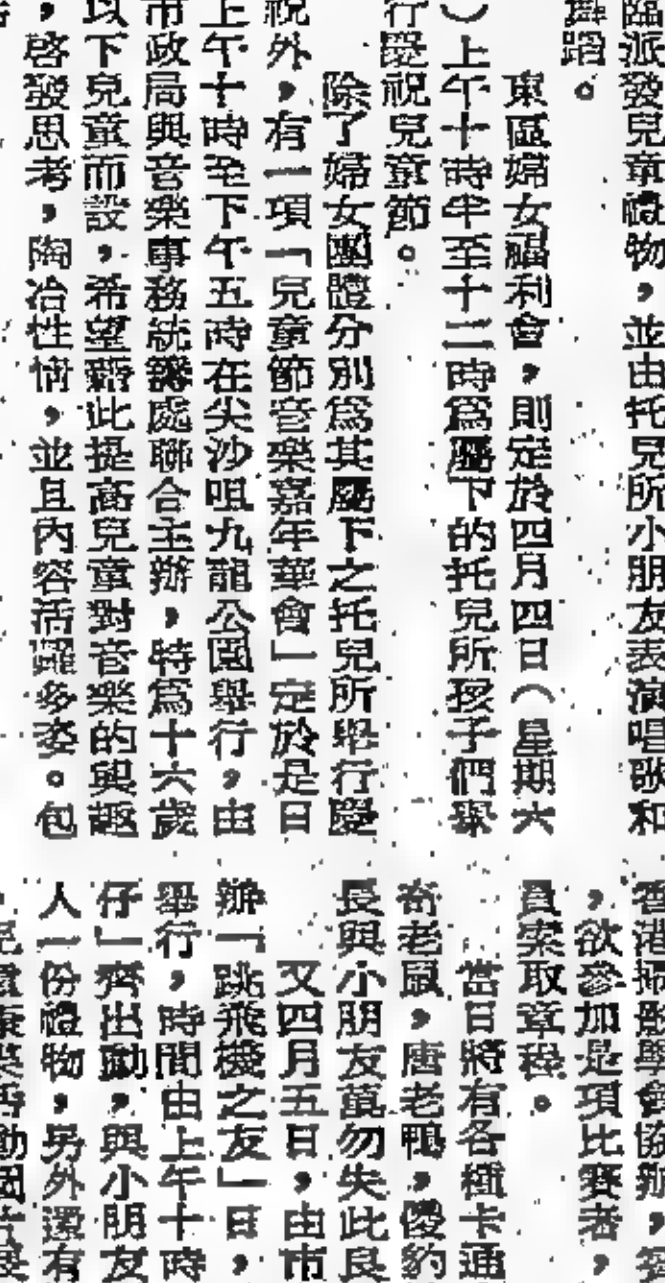 臨派發兒童禮物，並由托兒所小朋友表演唱歌和
舞蹈。
東區婦女福利會，則定於四月四日（星期六
）上午十時半至十二時爲屬下的托兒所孩子們舉
行慶祝兒童節。
除了婦女團體分別爲其屬下之托兒所舉行慶
祝外，有一項「兒童節音樂嘉年華會」定於是日
上午十時至下午五時在尖沙咀九龍公園舉行，由
市政局與音樂事務統籌處聯合主辦，特爲十六歲
以下兒童而設，希望藉此提高兒童對音樂的興趣
，啓發思考，陶冶性情，並且內容活躍多姿。包
香港攝影學會協辦，
，欲參加是項比賽者，
員索取章程。
當日將有各種卡通
奇老鼠，唐老鴨，傻豹
長與小朋友萬勿失此良
又四月五日，由市
辦「跳飛機之友」日，
舉行，時間由上午十時
仔」齊出動，與小朋友
人一份禮物，另外還有